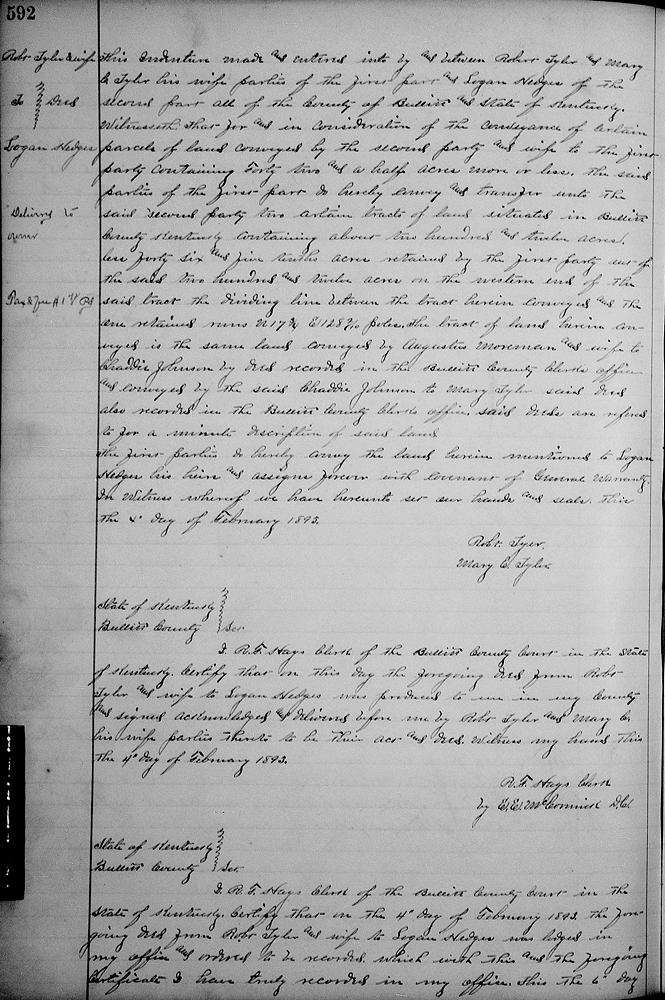 592
Robt Tyler & wife
To } Deed
Logan Hedges
Delivered to
owner
Tax & fee $1 75 pd
This Indenture made and entered into by and between Robert Tyler and Mary
C. Tyler his wife parties of the first part and Logan Hedges of the
second part all of the County of Bullitt and State of Kentucky.
Witnesseth that for and in consideration of the conveyance of certain
parcels of land conveyed by the second party and wife to the first
party containing Forty two and a half acres more or less. the said
parties of the first part do hereby convey and transfer unto the
said second party two certain tracts of land situated in Bullitt
County Kentucky containing about two hundred and twelve acres.
less forty six and five tenths acres retained by the first party out of
the said two hundred and twelve acres on the western end of the
said tract the dividing line between the tract herein conveyed and the
one retained runs N 17¾ E 128 poles. the tract of land herein con-
veyed is the same land conveyed by Augustus Moreman and wife to
Chaddie Johnson by deed recorded in the Bullitt County Clerks office
and conveyed by the said Chaddie Johnson to Mary Tyler said deed
also recorded in the Bullitt County Clerks office. said deeds are refered
to for a minute description of said land
The first parties do hereby convey the land herein mentioned to Logan
Hedges his heirs and assigns forever with covenant of General Warranty.
In Witness whereof we have hereunto set our hands and seals. this
the 4" day of February 1893.
Robt. Tyer.
Mary C. Tyler
State of Kentucky
Bullitt County } Sct.
I. R.F. Hays Clerk of the Bullitt County Court in the State
of Kentucky. Certify that on this day the foregoing deed from Robt
Tyler and wife to Logan Hedges was produced to me in my County
and signed acknowledged & delivered before me by Robt Tyler and Mary C.
his wife parties thereto to be their act and deed. Witness my hand this
the 4" day of February 1893.
R.F. Hays Clerk
by E.E. McCormick D.C.
State of Kentucky
Bullitt County } Sct.
I. R.F. Hays Clerk of the Bullitt County Court in the
State of Kentucky. Certify that on the 4" day of February 1893. the fore-
going deed from Robt Tyler and wife to Logan Hedges was lodged in
my office and ordered to be recorded. which with this and the foregoing
Certificate I have truly recorded in my office. this the 6" day